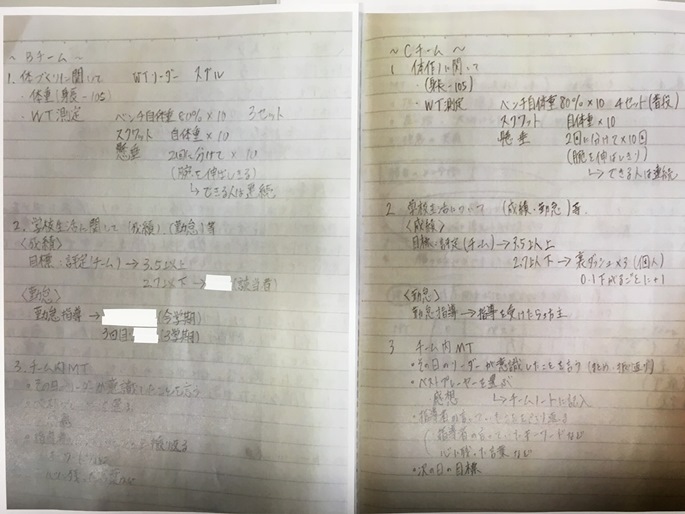 ~ Bチーム ~
1. 体づくりに関して WTリーダー スグル
・体重(身長-105)
・WT測定 ベンチ自体重80%×10 3セット
スクワット 自体重×10
懸垂 2回に分けて×10
(腕を伸ばしきる)
↳できる人は連続
2. 学校生活に関して (成績)(勤怠)等
<成績>
目標:評定(チーム)→3.5以上
2.7以下→ (該当者)
<勤怠>
勤怠指導→ (今学期)
3回目 (3学期)
3. チーム内MT
・その日のリーダーが意識したことを言う
~ Cチーム ~
1 体作りに関して
・(身長-105)
・WT測定 ベンチ自体重80%×10 4セット(着役)
スクワット 自体重×10
懸垂 2回に分けて×10回
(腕を伸ばしきり)
↳できる人は連続
2 学校生活について (成績・勤怠)等.
<成績>
目標:評定(チーム)→3.5以上
2.7以下→裏ダッシュ×3(個人)
0.1下がるごとに+1
<勤怠>
勤怠指導→指導を受けたら
3 チーム内MT
・その日のリーダーが意識したことを言う
・ベストプレーヤーを選ぶ
感想 ↳チームノートに記入
・指導者の言っていたことをふり返る
(指導者の言っていたキーワードなど
心に残った言葉など
・次の日の目標